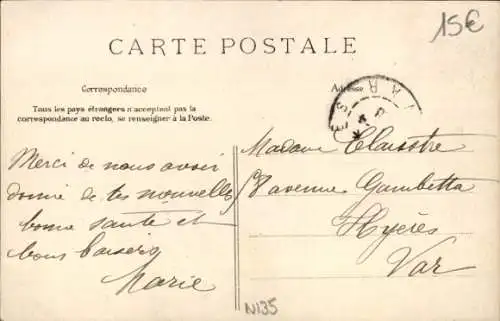 15€
CARTE POSTALE
Correspondance
Adresse
Tous les pays étrangers n'acceptent pas la
correspondance au recto, se renseigner à la Poste.
Merci de nous avoir
donné de tes nouvelles
bonne santé et
bons baisers
Marie
Madame Claisstre
8 avenue Gambetta
Hyères
Var
N135